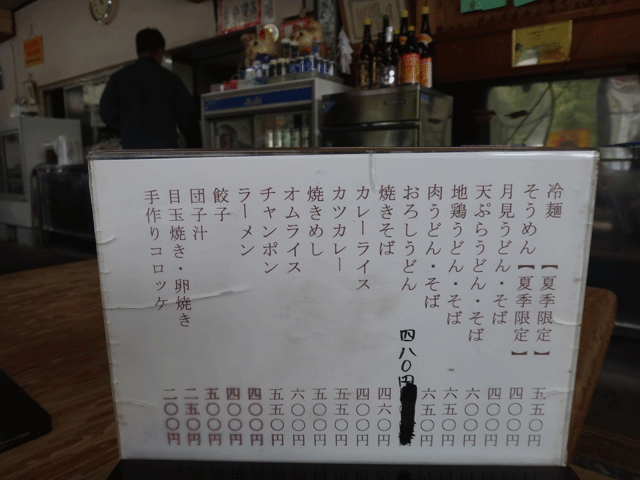 冷麺【夏季限定】 五五〇円
そうめん【夏季限定】 四〇〇円
月見うどん・そば 四〇〇円
天ぷらうどん・そば 六〇〇円
地鶏うどん・そば 六五〇円
肉うどん・そば 六五〇円
おろしうどん 四八〇円
焼きそば 四六〇円
カレーライス 四〇〇円
カツカレー 五五〇円
焼きめし 五〇〇円
オムライス 六〇〇円
チャンポン 五五〇円
ラーメン 四〇〇円
餃子 四〇〇円
団子汁 五〇〇円
目玉焼き・卵焼き 二五〇円
手作りコロッケ 二〇〇円